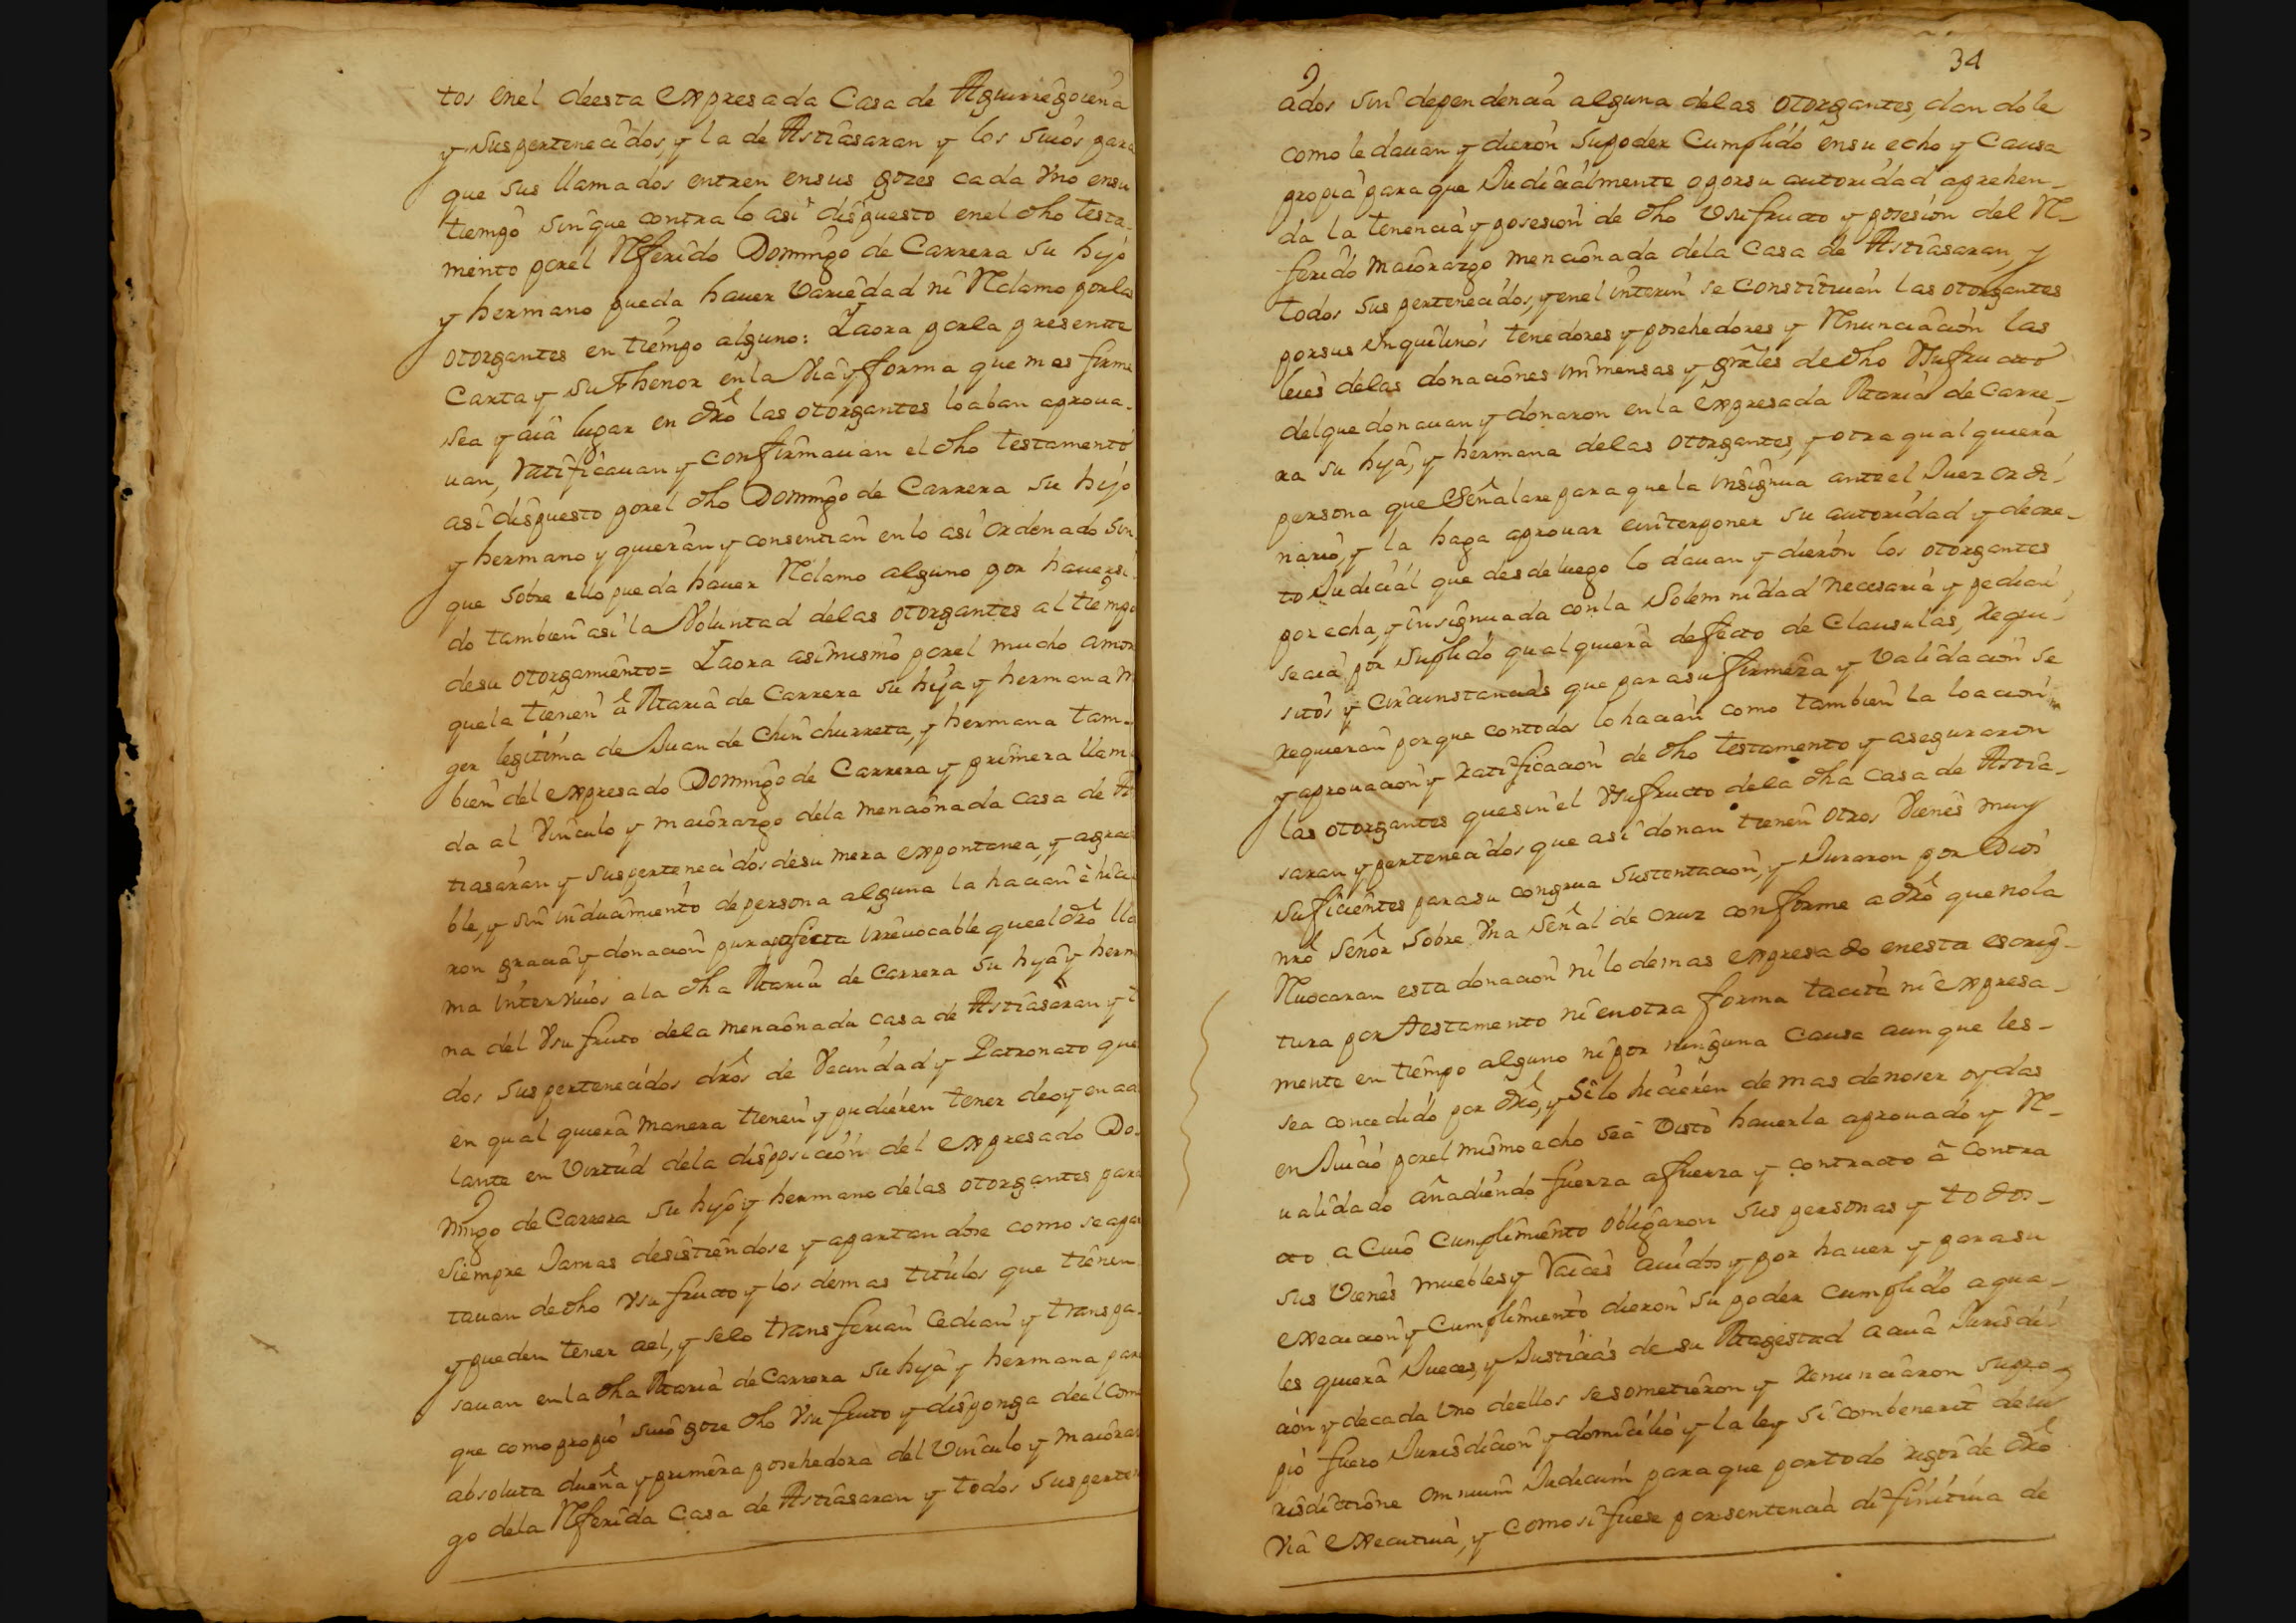 tos enel deesta expresada Casa de Aguirregoiena
y suspertenecidos, y la de Astiasaran y los suios para
que sus llamados entren ensus gozes cada Vno ensu
tiempo sinque contra lo asi dispuesto enel dho testa-
mento porel Referido Domingo de Carrera su hijo
y hermano pueda hauer Variedad ni Reclamo porlas
otorgantes en tiempo alguno: Iaora porla presente
Carta y su thenor enla Via y forma que mas firme
sea y aia lugar en dro las otorgantes loaban aproua-
uan, Ratificauan y confirmauan el dho testamento
asi dispuesto porel dho Domingo de Carrera su hijo
y hermano y querian y consentian enlo asi ordenado sin
que sobre ello pueda hauer Reclamo alguno por hauersi-
do tambien asi la Voluntad delas otorgantes al tiempo
desu otorgamiento = Iaora asimismo porel mucho amor
quela tienen â Maria de Carrera su hija y hermana m
ger legitima de Juan de Chinchurreta, y hermana tam-
bien del expresado Domingo de Carrera y primera llama
da al Vinculo y maiorazgo dela mencionada casa de As
tiasaran y suspertenecidos desu mera expontanea, y agrada
ble, y sin inducimiento depersona alguna la hacian ê hicie
ron gracia y donacion pura perfecta irreuocable queel dro lla
ma inter viuos ala dha Maria de Carrera su hija y herma
na del Vsufruto dela mencionada casa de Astiasaran y to
dos suspertenecidos dros de Vecindad y Patronato que
en qualquiera manera tienen y pudieren tener deoy en ade
lante en Virtud dela disposicion del expresado Do-
mingo de Carrera su hijo y hermano delas otorgantes para
siempre Jamas desistiendose y apartandose como se apar
tauan dedho Vsufructo y los demas titulos que tienen
y pueden tener ael, y selo transferian Cedian y transpa-
sauan enla dha Maria deCarrera su hija y hermana para
que comopropio suio goze dho Vsufruto y disponga deel Como
absoluta dueña y primera posehedora del Vinculo y maioraz
go dela Referida Casa de Astiasaran y todos susperten
34
ados sin dependencia alguna delas otorgantes, dandole
como ledauan y dieron supoder Cumplido ensu echo y Causa
propia para que Judicialmente o porsu autoridad aprehen-
da la tenencia y posesion de dho Vsufructo y posesion del Re-
ferido maiorazgo mencionada dela Casa de Astiasaran, y
todos sus pertenecidos, yenel interin se constituian las otorgantes
porsus inquilinos tenedores y posehedores y Renunciacion las
leies delas donaciones inmensas y grales dedho Vsufructo
delque donauan y donaron enla expresada Maria de Carre-
ra su hija, y hermana delas otorgantes, y otra qualquiera
persona que señalare para quela insignua anteel Juez ordi-
nario, y la haga aprouar einterponer su autoridad y decre-
to Judicial que desdeluego lo dauan y dieron los otorgantes
por echa, y insignuada conla solemnidad necesaria y pedian
seaia por suplido qualquiera defecto de Clausulas, requi-
sitos y circunstancias que parasu firmeza y Validacion se
requieran porque contodas lo hacian como tambien la loacion
y aprouacion y ratificacion de dho testamento y aseguraron
las otorgantes quesin el Vsufructo dela dha Casa de Astia-
saran y pertenecidos que asi donan tienen otros Vienes muy
suficientes parasu congrua sustentacion, y Juraron por Dios
nro Señor sobre Vna Señal de cruz conforme a dro que nola
Reuocaran esta donacion ni lo demas expresado enesta escrip-
tura por testamento ni enotra forma tacita ni expresa-
mente en tiempo alguno ni por ninguna Causa aunque les-
sea concedido por dro, y silo hicieren demas denoser oydas
en Juicio porel mismo echo sea Visto hauerla aprouado y Re-
ualidado añadiendo fuerza afuerza y contracto â contra
cto a Cuio Cumplimiento obligaron sus personas y todos-
sus Vienes muebles y Raices auidos y por hauer y parasu
execucion y Cumplimiento dieron supoder cumplido aqua-
lesquiera Jueces, y Justicias de su Magestad acuia Jurisdi-
cion y decada Vno deellos sesometieron y renunciaron supro-
pio fuero Jurisdicion y domicilio y la ley si combenerit deiu
risdictione omnium Judicum paraque portodo rigor de dro
Via executiua, y comosi fuese porsentencia difinitiua de